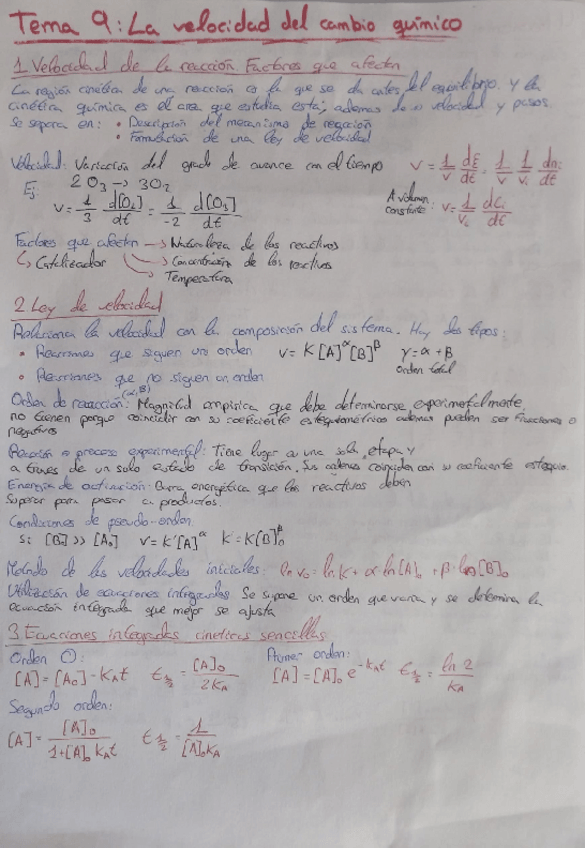 Tema 9: La velocidad del cambio químico
1 Velocidad de la reacción Factores que afectan
La región cinética de una reacción es la que se da antes del equilibrio. y la
cinética química es el area que estudia esta; ademas de velocidad y pasos.
Se separa en: • Descripción del mecanismo de reacción
• Formulación de una ley de velocidad
Velocidad: Variación del grado de avance con el tiempo v = 1/V dξ/dt = 1/V 1/νi dni/dt
Ej: 2O3 → 3O2
v = 1/3 d[O2]/dt = 1/-2 d[O3]/dt
A volumen constante: v = 1/νi dCi/dt
Factores que afectan → Naturaleza de los reactivos
↳ Catalizador → Concentración de los reactivos
→ Temperatura
2 Ley de velocidad
Relaciona la velocidad con la composición del sistema. Hay dos tipos:
• Reacciones que siguen un orden v = K[A]^α[B]^β γ = α + β
Orden total
• Reacciones que no siguen un orden
Orden de reacción (α,β): Magnitud empirica que debe determinarse experimentalmente,
no tienen porque coincidir con su coeficiente estequiométrico ademas pueden ser fracciones o
negativos
Reacción o proceso experimental: Tiene lugar a una sola etapa y
a traves de un solo estado de transición. Sus ordenes coinciden con su coeficiente estequio.
Energia de activación: Barra energética que los reactivos deben
superar para pasar a productos.
Condiciones de pseudo-orden
Si [B] >> [A₀] v = K'[A]^α K' = K[B]₀^β
Método de las velocidades iniciales: ln v₀ = ln K + α ln[A]₀ + β·ln[B]₀
Utilización de ecuaciones integradas Se supone un orden que varia y se determina la
ecuación integrada que mejor se ajusta
3 Ecuaciones integradas cineticas sencillas
Orden 0: Primer orden:
[A] = [A₀] - K_A t t½ = [A]₀/2K_A [A] = [A]₀ e^-K_A t t½ = ln 2/K_A
Segundo orden:
[A] = [A]₀/1+[A]₀ K_A t t½ = 1/[A]₀K_A